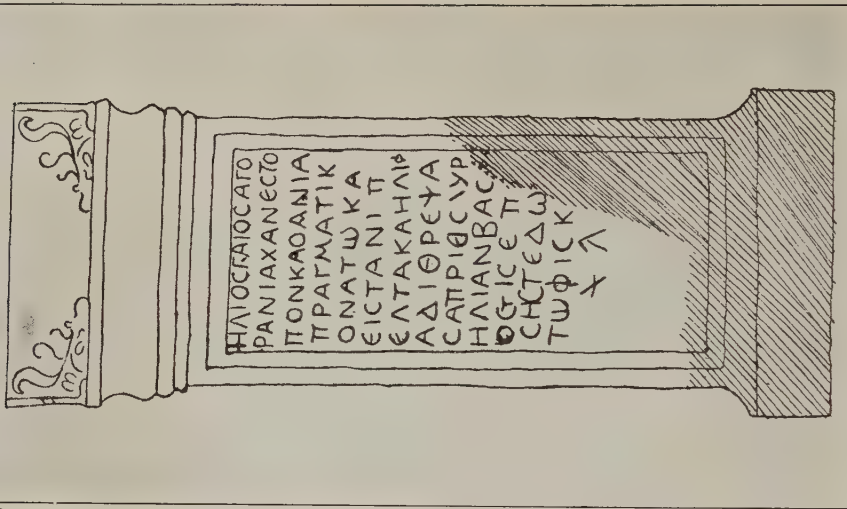 ΗΛΙΟCΓΑΙΟCΑΓΟ
ΡΑΝΙΑΧΑΝΕCΤΟ
ΠΟΝΚΑΟΑΝΙΑ
ΠΡΑΓΜΑΤΙΚ
ΟΝΑΤωΚΑ
ΕΙCΤΑΝΙ Π
ΕΛΤΑΚΑΗΛΙ
ΑΔΙΘΡΕΨΑ
CΑΠΡΙΘCΛΥΡ
ΗΛΙΑΝΒΑC
ΙCΕ Π
CΗCΤΕΔω
ΤωΦΙCΚ
Χ